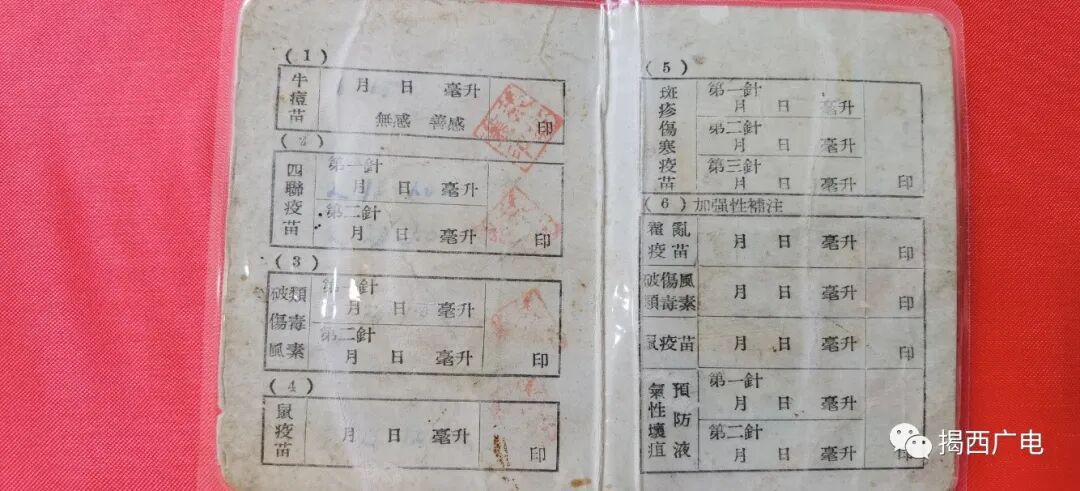 (1)
牛痘苗
月 日 毫升
無感 善感 印
(2)
四聯疫苗
第一針
月 日 毫升
第二針
月 日 毫升 印
(3)
破傷風類毒素
第一針
月 日 毫升
第二針
月 日 毫升 印
(4)
鼠疫苗
月 日 毫升 印
(5)
斑疹傷寒疫苗
第一針
月 日 毫升
第二針
月 日 毫升
第三針
月 日 毫升 印
(6) 加强性補注
霍亂疫苗
月 日 毫升 印
破傷風類毒素
月 日 毫升 印
鼠疫苗
月 日 毫升 印
氣性壞疽預防液
第一針
月 日 毫升
第二針
月 日 毫升 印
揭西广电